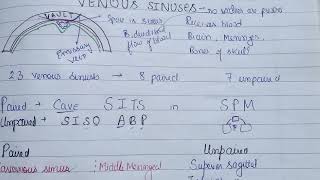 VENOUS SINUSES → no valves or
VAULT
Space in sinus
Receives blood
B. direction of flow of blood
Brain, Meninges,
Bones of skull
Emissary vein
23 venous sinuses → 8 paired 7 unpaired
Paired → Cave SITS in SPM
Unpaired → SISO ABP
Paired Unpaired
Cavernous sinus : Middle Meningeal Superior sagittal